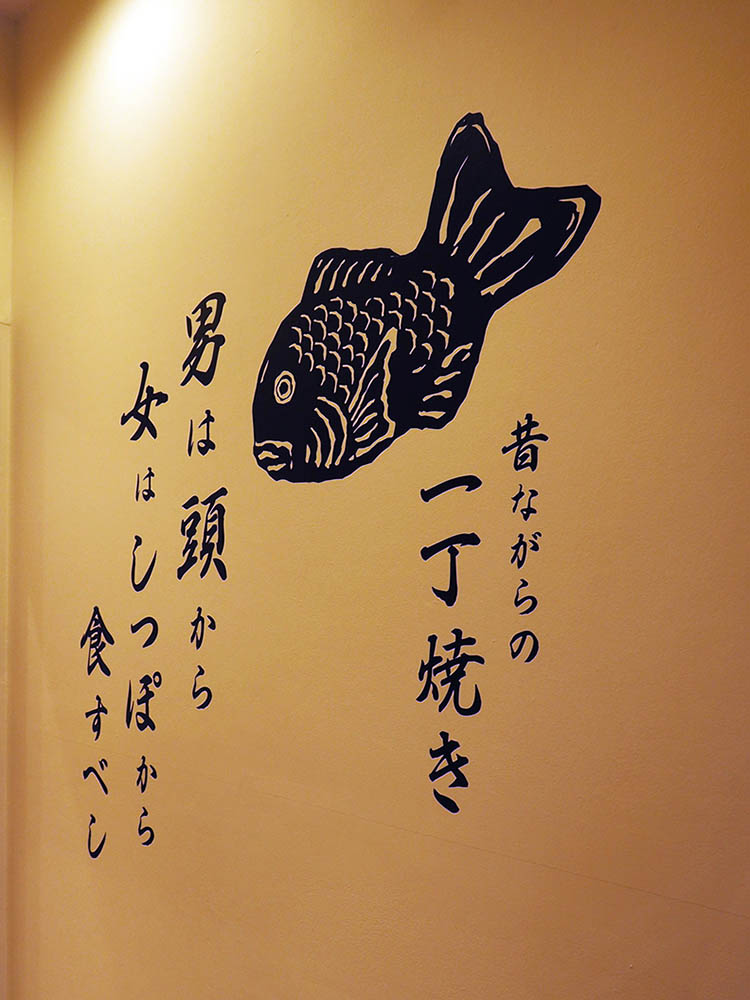 昔ながらの
一丁焼き
男は頭から
女はしつぽから
食すべし